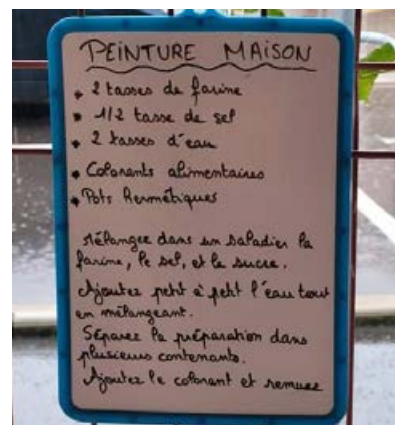 PEINTURE MAISON
• 2 tasses de farine
• 1/2 tasse de sel
• 2 tasses d'eau
• Colorants alimentaires
• Pots hermétiques
Mélangez dans un saladier la
farine, le sel, et le sucre.
Ajoutez petit à petit l'eau tout
en mélangeant.
Séparez la préparation dans
plusieurs contenants.
Ajoutez le colorant et remuez